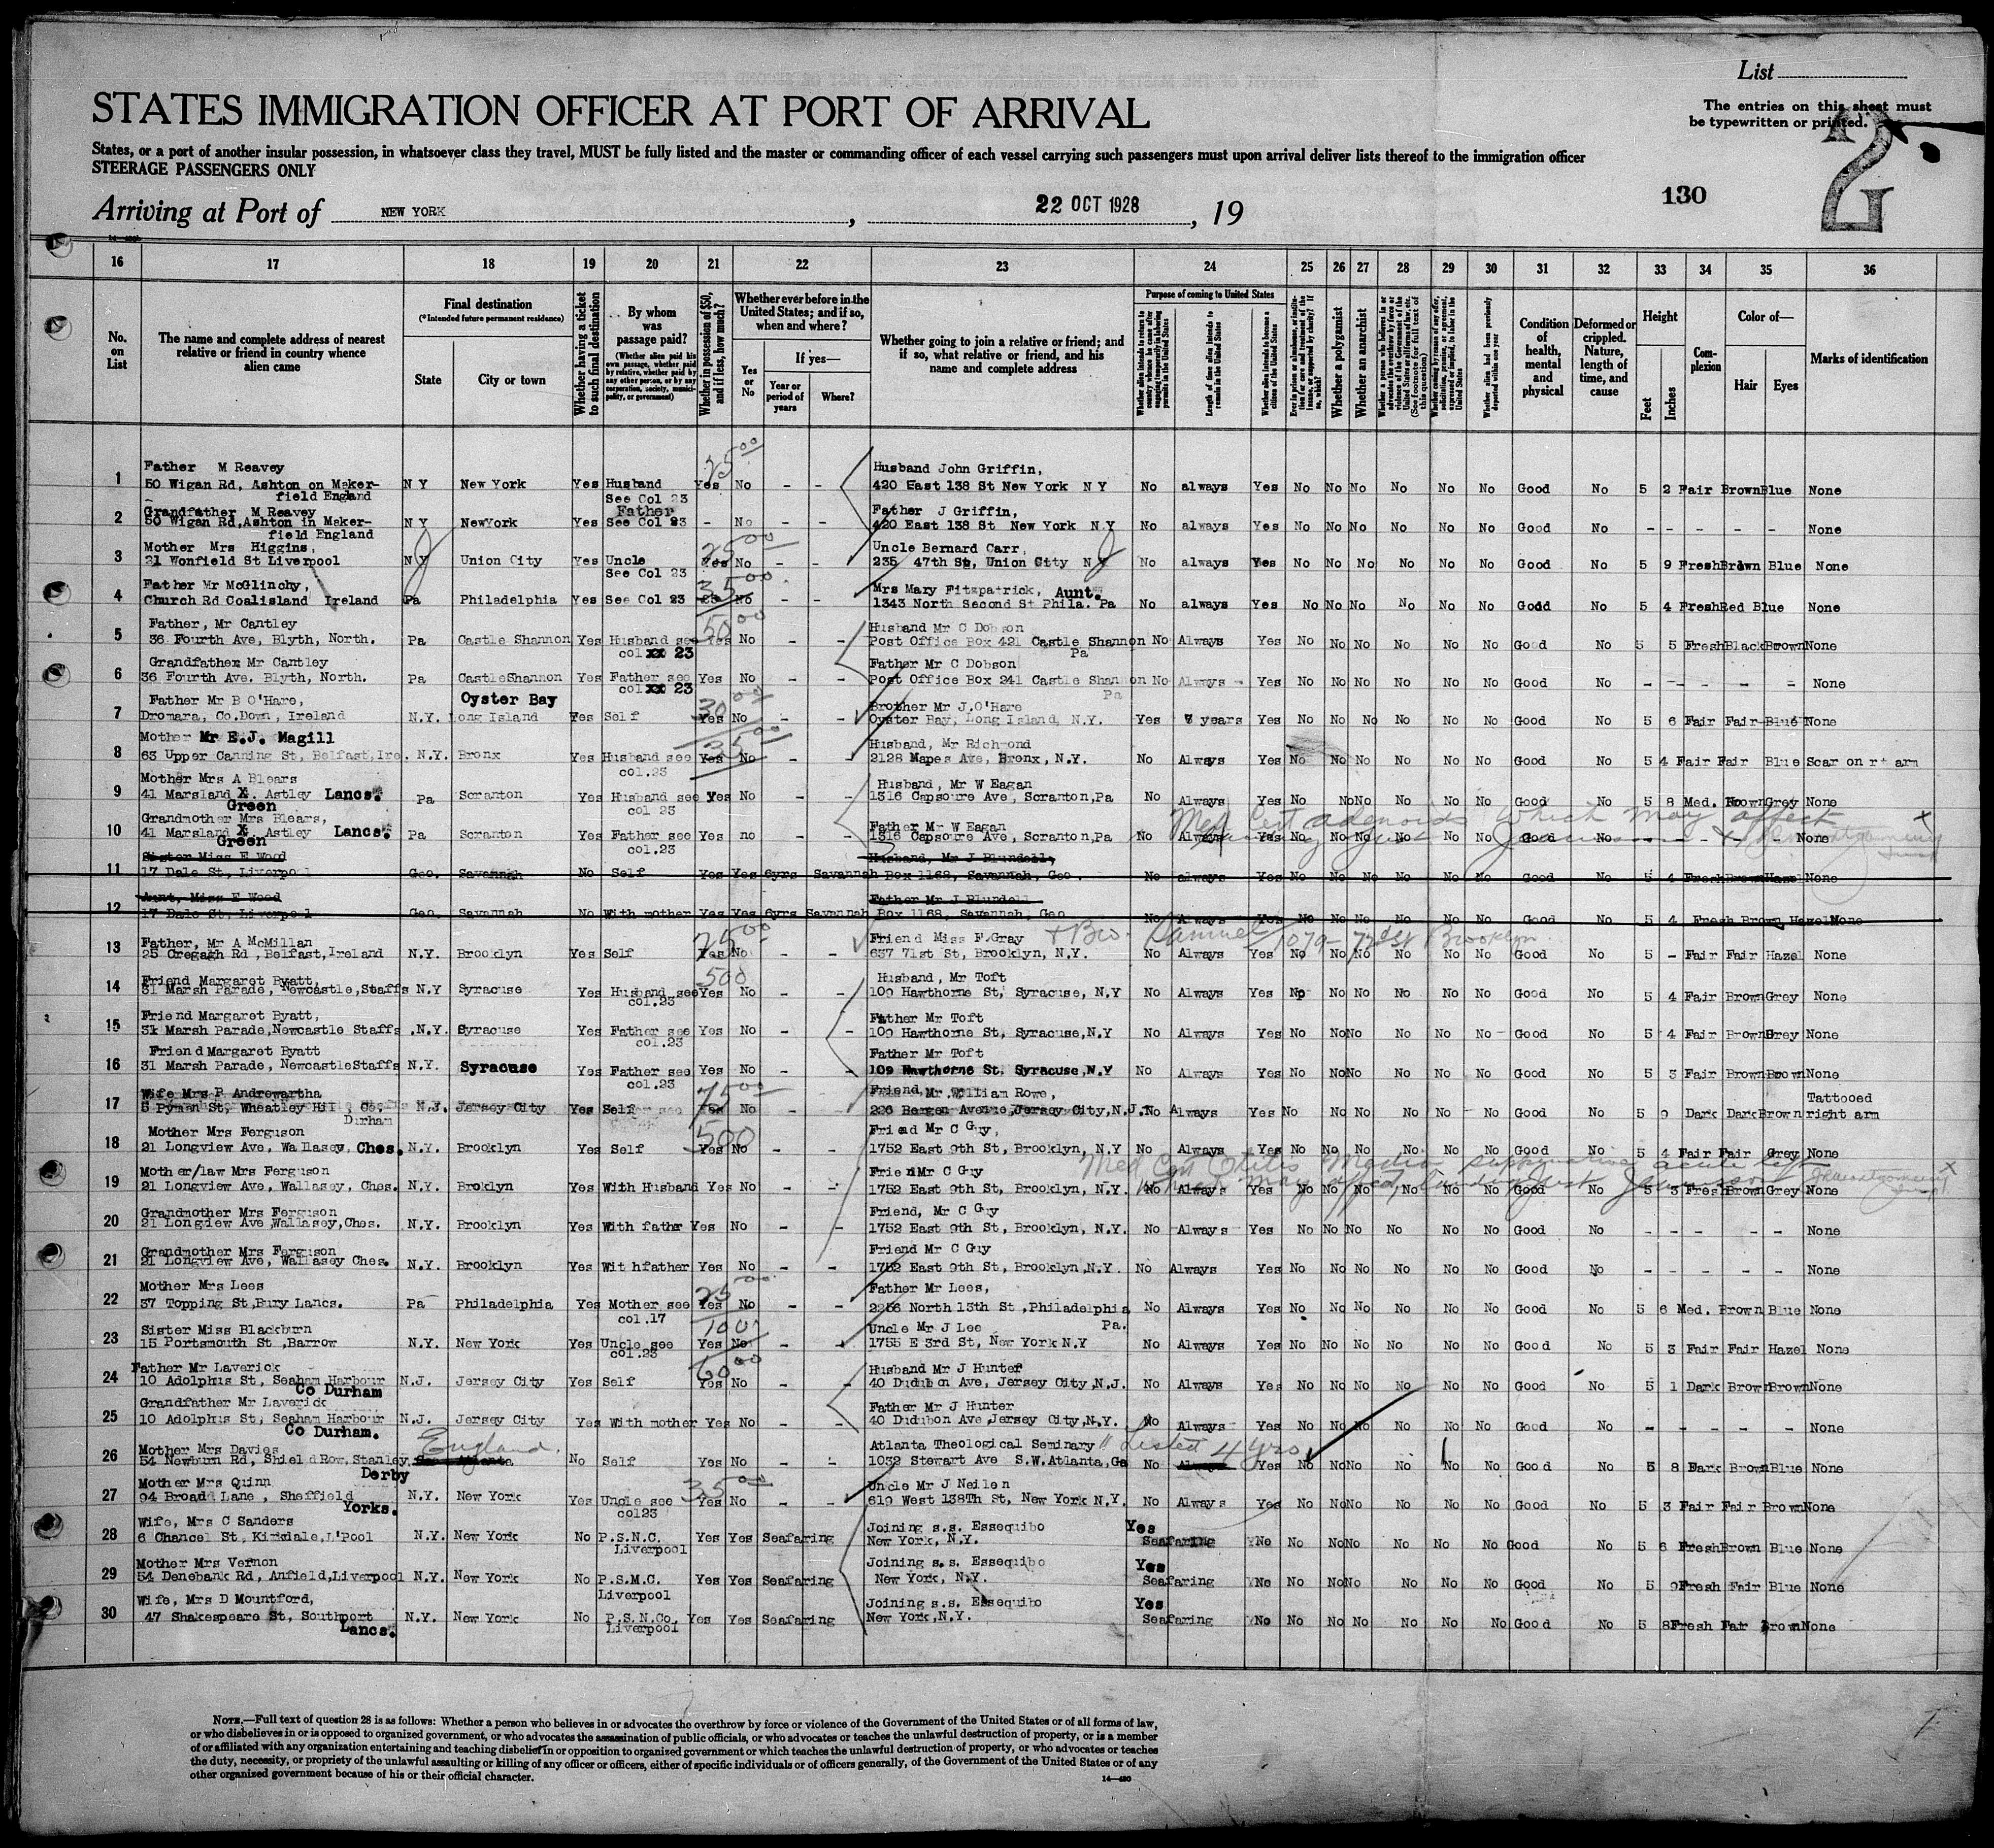 List
The entries on this sheet must
be typewritten or printed.
STATES IMMIGRATION OFFICER AT PORT OF ARRIVAL
States, or a port of another insular possession, in whatsoever class they travel, MUST be fully listed and the master or commanding officer of each vessel carrying such passengers must upon arrival deliver lists thereof to the immigration officer
STEERAGE PASSENGERS ONLY
130
Arriving at Port of NEW YORK, 22 OCT 1928, 19
16 17 18 19 20 21 22 23 24 25 26 27 28 29 30 31 32 33 34 35 36
No. on List
The name and complete address of nearest relative or friend in country whence alien came
Final destination
(*Intended future permanent residence)
State City or town
Whether having a ticket to such final destination
By whom was passage paid?
(Whether alien paid his own passage, whether paid by relative, whether paid by any other person, or by any corporation, society, municipality, or government)
Whether in possession of $50, and if less, how much?
Whether ever before in the United States; and if so, when and where?
Yes or No
If yes—
Year or period of years
Where?
Whether going to join a relative or friend; and if so, what relative or friend, and his name and complete address
Purpose of coming to United States
Length of time alien intends to remain in the United States
Whether alien intends to become a citizen of the United States
Whether a polygamist
Whether an anarchist
Condition of health, mental and physical
Deformed or crippled. Nature, length of time, and cause
Height
Feet Inches
Complexion
Color of—
Hair Eyes
Marks of identification
Father M Reavey Husband John Griffin,
1 50 Wigan Rd, Ashton on Maker- N Y New York Yes Husband Yes No - - 420 East 138 St New York N Y No always Yes No No No No No No Good No 5 2 Fair Brown Blue None
field England See Col 23
Grandfather M Reavey Father Father J Griffin,
2 50 Wigan Rd, Ashton in Maker- N Y NewYork Yes See Col 23 - No - - 420 East 138 St New York N.Y No always Yes No No No No No No Good No - - - - - None
field England
Mother Mrs Higgins, 25 00 Uncle Bernard Carr,
3 21 Wonfield St Liverpool N Y Union City Yes Uncle Yes No - - 235 47th St, Union City N Y No always Yes No No No No No No Good No 5 9 Fresh Brown Blue None
See Col 23
Father Mr McGlinchy, 35 00 Mrs Mary Fitzpatrick, Aunt.
4 Church Rd Coalisland Ireland Pa Philadelphia Yes See Col 23 No - - 1343 North Second St Phila. Pa No always Yes No No No No No No Good No 5 4 Fresh Red Blue None
Father, Mr Cantley 50 00 Husband Mr C Dobson
5 36 Fourth Ave, Blyth, North. Pa Castle Shannon Yes Husband see Yes No - - Post Office Box 421 Castle Shannon No Always Yes No No No No No No Good No 5 5 Fresh Black Brown None
col xx 23 Pa
Grandfather Mr Cantley Father Mr C Dobson
6 36 Fourth Ave. Blyth, North. Pa CastleShannon Yes Father see Yes No - - Post Office Box 241 Castle Shannon No Always - Yes No No No No No No Good No - - - - - None
col xx 23 Pa
Father Mr B O'Hare, Oyster Bay 30 00 Brother Mr J.O'Hare
7 Dromara, Co.Down, Ireland N.Y. Long Island Yes Self Yes No - - Oyster Bay, Long Island, N.Y. Yes 7 years Yes No No No No No No Good No 5 6 Fair Fair Blue None
Mother Mr E.J. Magill 35 00 Husband, Mr Richmond
8 63 Upper Canning St, Belfast, Ire. N.Y. Bronx Yes Husband see Yes No - - 2128 Mapes Ave, Bronx, N.Y. No Always Yes No No No No No No Good No 5 4 Fair Fair Blue Scar on rt arm
col.23
Mother Mrs A Blears Husband, Mr W Eagan
9 41 Marsland X. Astley Lancs. Pa Scranton Yes Husband see Yes No - - 1316 Capsoure Ave, Scranton,Pa No Always Yes No No No No No No Good No 5 8 Med. Brown Grey None
Green col 23
Med Cert adenoids which may affect
Grandmother Mrs Blears, Father Mr W Eagan
10 41 Marsland X. Astley Lancs. Pa Scranton Yes Father see Yes no - - 1316 Capsoure Ave, Scranton,Pa No Always Yes No No No No No No Good No - - - None
Green col.23
Sister Miss E Wood Husband, Mr J Blundell,
11 17 Dale St, Liverpool Geo. Savannah No Self Yes Yes 6yrs Savannah Box 1168, Savannah, Geo. No always Yes No No No No No No Good No 5 4 Fresh Brown Hazel None
Aunt, Miss E Wood Father Mr J Blundell
12 17 Dale St, Liverpool Geo. Savannah No With mother Yes Yes 6yrs Savannah Box 1168, Savannah, Geo No Always Yes No No No No No No Good No 5 4 Fresh Brown Hazel None
Father, Mr A McMillan 25 00 Friend Miss F.Gray + Bro. Samuel 1079 - 72nd St Brooklyn
13 25 Cregagh Rd, Belfast, Ireland N.Y. Brooklyn Yes Self Yes No - - 637 71st St, Brooklyn, N.Y. No Always Yes No No No No No No Good No 5 - Fair Fair Hazel None
Friend Margaret Byatt, 500 Husband, Mr Toft
14 31 Marsh Parade, Newcastle, Staffs N.Y Syracuse Yes Husband see Yes No - - 109 Hawthorne St, Syracuse, N.Y No Always Yes No No No No No No Good No 5 4 Fair Brown Grey None
col.23
Friend Margaret Byatt, Father Mr Toft
15 31 Marsh Parade, Newcastle Staffs .N.Y. Syracuse Yes Father see Yes No - - 109 Hawthorne St, Syracuse,N.Y No Always Yes No No No No No No Good No 5 4 Fair Brown Grey None
col.23
Friend Margaret Byatt Father Mr Toft
16 31 Marsh Parade, Newcastle Staffs N.Y. Syracuse Yes Father see Yes No - - 109 Hawthorne St, Syracuse,N.Y No Always Yes No No No No No No Good No 5 3 Fair Brown Brown None
col.23
Wife Mrs P Andrewartha 75 00 Friend, Mr.William Rowe, Tattooed
17 5 Pyman St, Wheatley Hill, Co, N.J. Jersey City Yes Self Yes No - - 226 Bergen Avenue, Jersey City, N.J. No Always Yes No No No No No No Good No 5 9 Dark Dark Brown right arm
Durham
Mother Mrs Ferguson 500 Friend Mr C Guy,
18 21 Longview Ave, Wallasey, Ches. N.Y. Brooklyn Yes Self Yes No - - 1752 East 9th St, Brooklyn, N.Y No Always Yes No No No No No No Good No 5 4 Fair Fair Grey None
Med Cert Otitis Media suppurative acute left
Mother/law Mrs Ferguson Frien Mr C Guy
19 21 Longview Ave, Wallasey, Ches. N.Y. Broklyn Yes With Husband Yes No - - 1752 East 9th St, Brooklyn, N.Y. No Always Yes No No No No No No Good No 5 3 Fresh Brown Grey None
Grandmother Mrs Ferguson Friend, Mr C Guy
20 21 Longview Ave, Wallasey, Ches. N.Y. Brooklyn Yes With fathr Yes No - - 1752 East 9th St, Brooklyn, N.Y. No Always Yes No No No No No No Good No - - - - - None
Grandmother Mrs Ferguson Friend Mr C Guy
21 21 Longview Ave, Wallasey Ches. N.Y. Brooklyn Yes Withfather Yes No - - 1752 East 9th St, Brooklyn, N.Y. No Always Yes No No No No No No Good No - - - - - None
Mother Mrs Lees 25 00 Father Mr Lees,
22 37 Topping St, Bury Lancs. Pa Philadelphia Yes Mother see Yes No - - 2256 North 13th St, Philadelphia No Always Yes No No No No No No Good No 5 6 Med. Brown Blue None
col.17 Pa.
Sister Miss Blackburn 100 Uncle Mr J Lee
23 15 Portsmouth St, Barrow N.Y. New York Yes Uncle see Yes No - - 1755 E 3rd St, New York N.Y No Always Yes No No No No No No Good No 5 3 Fair Fair Hazel None
col.23
Father Mr Laverick 60 00 Husband Mr J Hunter
24 10 Adolphus St, Seaham Harbour N.J. Jersey City Yes Self Yes No - - 40 Dudubon Ave, Jersey City, N.J. No Always Yes No No No No No No Good No 5 1 Dark Brown Brown None
Co Durham
Grandfather Mr Laverick Father Mr J Hunter
25 10 Adolphus St, Seaham Harbour N.J. Jersey City Yes With mother Yes No - - 40 Dudubon Ave, Jersey City, N.Y. No Always Yes No No No No No No Good No - - - - - None
Co Durham.
Mother Mrs Davies England. Atlanta Theological Seminary Listed 4 yrs
26 54 Newburn Rd, Shield Row, Stanley, Atlanta No Self Yes No - - 1032 Stewart Ave S.W. Atlanta, Ga No Always Yes No No No No No No Good No 5 8 Dark Brown Blue None
Derby
Mother Mrs Quinn 35 00 Uncle Mr J Neilen
27 94 Broad Lane, Sheffield N.Y. New York Yes Uncle see Yes No - - 619 West 138Th St, New York N.Y. No Always Yes No No No No No No Good No 5 3 Fair Fair Brown None
Yorks. col23
Wife, Mrs C Sanders Joining s.s. Essequibo Yes
28 6 Chancel St, Kirkdale, L'Pool N.Y. New York No P.S.N.C. Yes Yes Seafaring New York, N.Y. Seafaring No No No No No No No Good No 5 6 Fresh Brown Blue None
Liverpool
Mother Mrs Vernon Joining s.s. Essequibo Yes
29 54 Denebank Rd, Anfield, Liverpool N.Y. New York No P.S.M.C. Yes Yes Seafaring New York, N.Y. Seafaring No No No No No No No Good No 5 9 Fresh Fair Blue None
Liverpool
Wife, Mrs D Mountford, Joining s.s. Essequibo Yes
30 47 Shakespeare St, Southport N.Y. New York No P.S.N.Co. Yes Yes Seafaring New York, N.Y. Seafaring No No No No No No No Good No 5 8 Fresh Fair Brown None
Lancs. Liverpool
NOTE.—Full text of question 28 is as follows: Whether a person who believes in or advocates the overthrow by force or violence of the Government of the United States or of all forms of law,
or who disbelieves in or is opposed to organized government, or who advocates the assassination of public officials, or who advocates or teaches the unlawful destruction of property, or is a member
of or affiliated with any organization entertaining and teaching disbelief in or opposition to organized government or which teaches the unlawful destruction of property, or who advocates or teaches
the duty, necessity, or propriety of the unlawful assaulting or killing of any officer or officers, either of specific individuals or of officers generally, of the Government of the United States or of any
other organized government because of his or their official character.
14—430